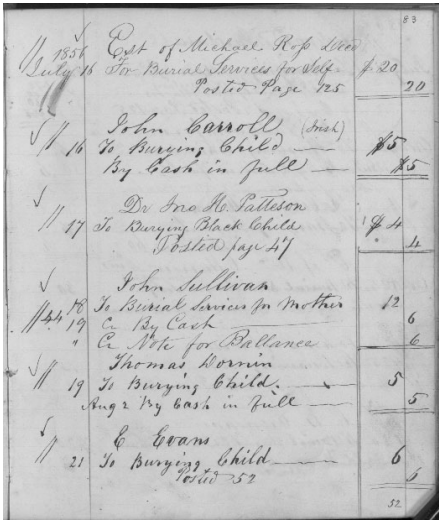 83
1856 Est of Michael Ross Decd
July 16 For Burial Services for Self $20
Posted Page 125 20
John Carroll (Irish)
16 To Burying Child $5
By Cash in full $5
Dr Jno H. Patteson
17 To Burying Black Child $4
Posted page 47 4
John Sullivan
18 To Burial Services for Mother 12
19 Cr By Cash 6
" Cr Note for Ballance 6
Thomas Dornin
19 To Burying Child 5
Aug 2 By Cash in full 5
E Evans
21 To Burying Child 6
Posted 52 6
52